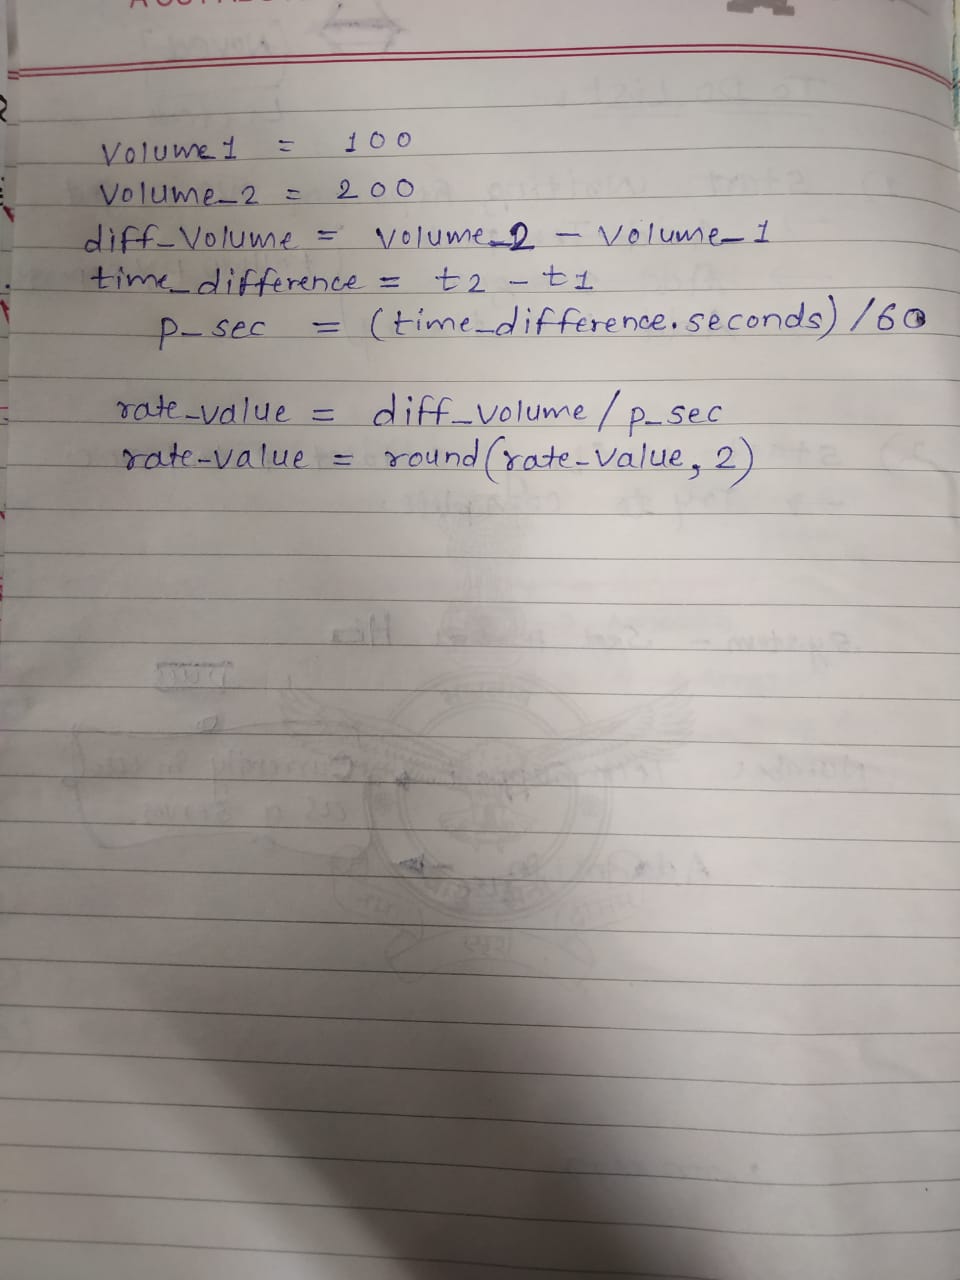 Volume1 = 100
Volume_2 = 200
diff_Volume = Volume_2 - Volume_1
time_difference = t2 - t1
p_sec = (time_difference.seconds) /60
rate_value = diff_volume / p_sec
rate_value = round(rate_value, 2)